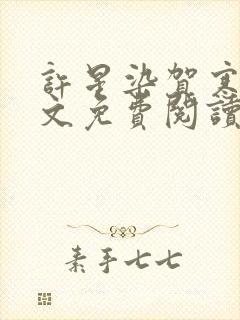 許星染賀寒
文免費閱讀
素手七七